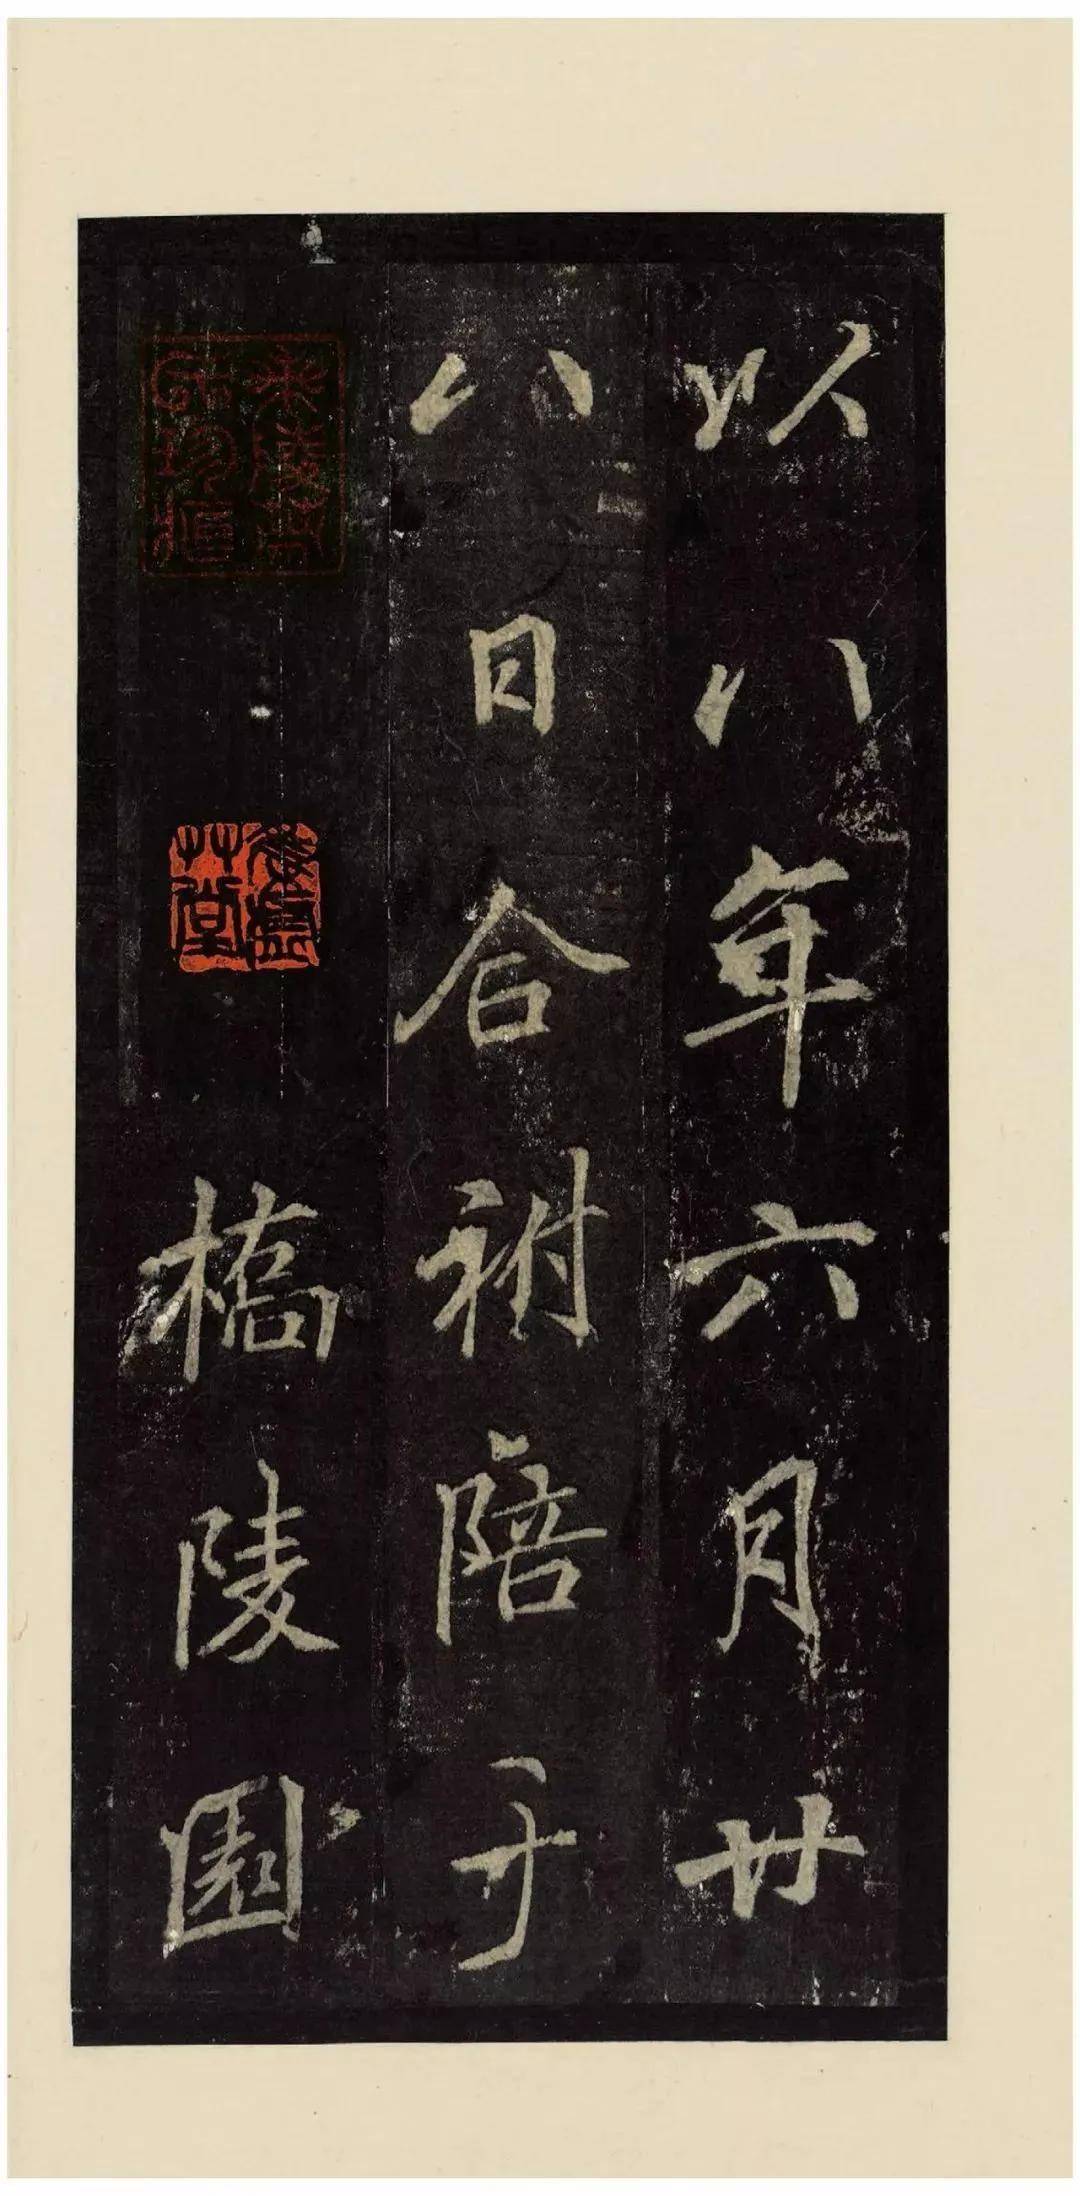 以八年六月廿
八日合祔陪于
橋陵園